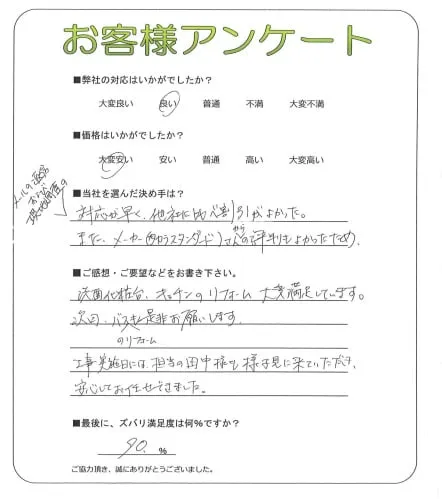 お客様アンケート
■弊社の対応はいかがでしたか?
大変良い 良い 普通 不満 大変不満
■価格はいかがでしたか?
大変安い 安い 普通 高い 大変高い
■当社を選んだ決め手は?
メールの返答
および
現地調査の
対応が早く、他社に比べ割引がよかった。
また、メーカー(タカラスタンダード)さんからの評判もよかったため。
■ご感想・ご要望などをお書き下さい。
洗面化粧台、キッチンのリフォーム 大変満足しています。
次回、バスも是非お願いします。
のリフォーム
工事実施日には、担当の田中様も様子見に来ていただき、
安心してお任せできました。
■最後に、ズバリ満足度は何%ですか?
90. %
ご協力頂き、誠にありがとうございました。